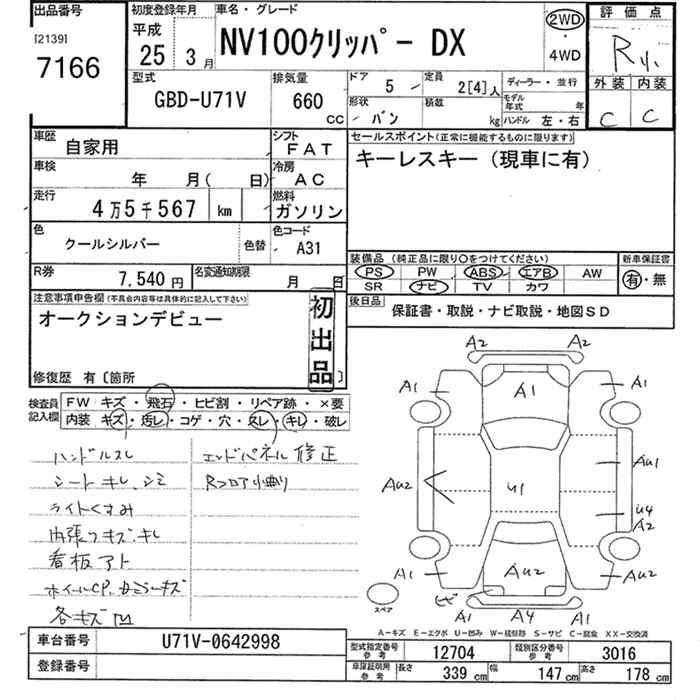 出品番号
[2139]
7166
初度登録年月
平成
25 3月
車名・グレード
NV100クリッパー DX
2WD
・
4WD
評価点
R小
外装 内装
C C
型式
GBD-U71V
排気量
660
CC
ドア 5
定員 2[4]人
ディーラー・並行
形状 バン
積載 kg
モデル年式 年
ハンドル 左・右
車歴 自家用
シフト FAT
車検 年 月( 日)
冷房 AC
走行 4万5千567 km
燃料 ガソリン
色 クールシルバー 色替
色コード A31
R券 7,540円
名変通知期限 月 日
セールスポイント(正常に機能するものに限ります)
キーレスキー(現車に有)
装備品(純正品に限り○をつけてください)
PS PW ABS エアB AW
SR ナビ TV カワ
新車保証書
有・無
後日品 保証書・取説・ナビ取説・地図SD
注意事項申告欄(不具合内容等は具体的に記入して下さい)
オークションデビュー
初出品
修復歴 有〔箇所 〕
検査員記入欄
FW キズ・飛石・ヒビ割・リペア跡・×要
内装 キズ・汚レ・コゲ・穴・スレ・キレ・破レ
ハンドルスレ
シートキレ、シミ
ライトくすみ
内張りキズ・キレ
看板アト
ホイールCP、カミラーキズ
各キズ凹
エンドパネル修正
Rフロア小曲り
A2 A2
A1 A1 A1
AU2 U1 AU1
U4
A2
A1 AU2 A1
ヒビ
スペア
A1 A4 A1
A-キズ E-エクボ U-凹み W-補修跡 S-サビ C-腐食 XX-交換済
車台番号 U71V-0642998
登録番号
型式指定番号 参考 12704
類別区分番号 参考 3016
車庫証明用 参考 長さ 339cm 幅 147cm 高さ 178cm